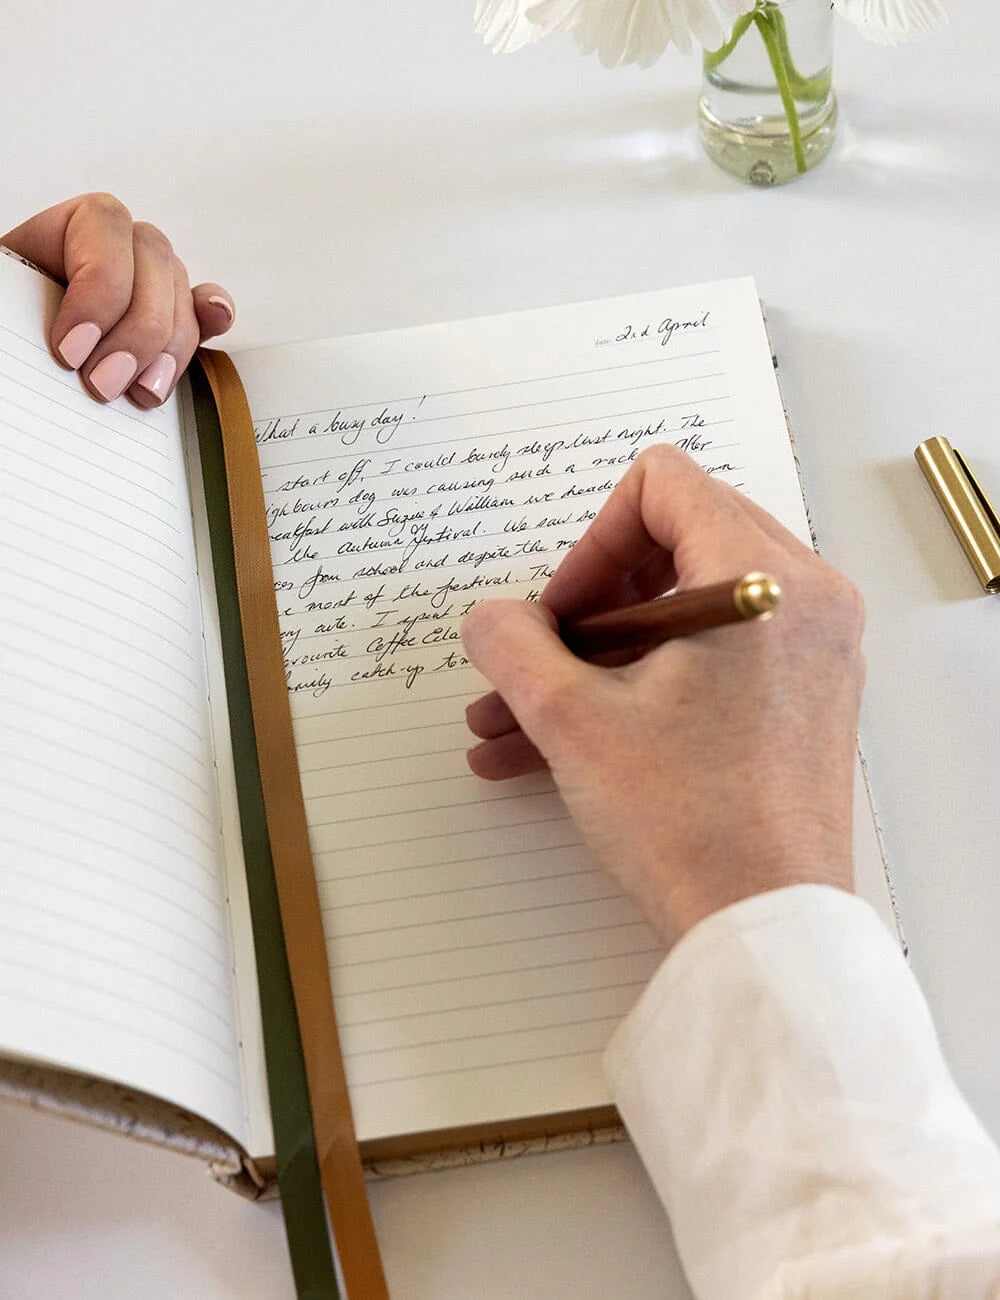 date: 2nd April
What a busy day!
start off, I could barely sleep last night. The
ighbours dog was causing such a rack After
eakfast with Suzie & William we headed own
the Autumn festival. We saw so
ces from school and despite the ra
most of the festival. The
ery cute. I spent t
avourite Coffee
amily catch-up tom